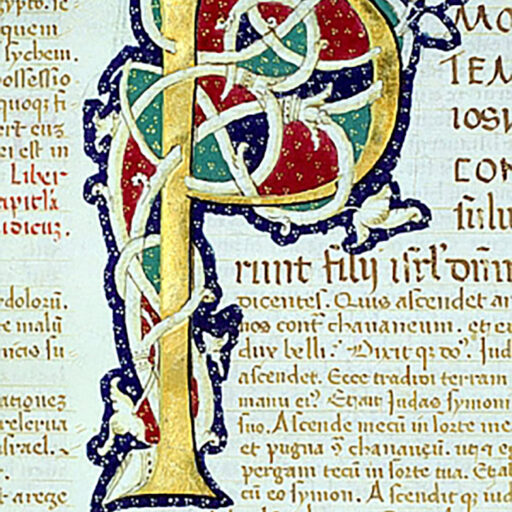 quem
sychem.
possessio
quoqꝫ fi
ert eiꝰ
ei est in
Liber
apitla
udicuꝫ.
dolozū.
te malū
su
ationeꝫ
srael.
t arege
P
MO
TEM
IOSU
CON
sulu
runt filij isrl' dnm
dicentes. Quis ascendet an
nos cont' chananeum. et er
dux belli. Dixit qꝫ do'. Jud
ascendet. Ecce tradidi terram
manu ei'? Et ait Judas symoni
suo. Ascende mecū in sorte me
et pugna 9 chananeū. ut
pergam tecū in sorte tua. Et ab
cū eo symon. Ascendit qꝫ iud